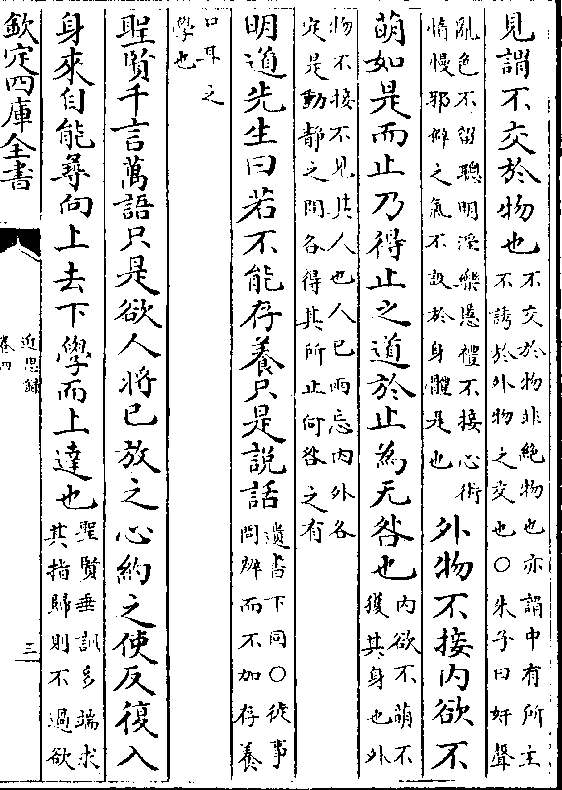 見謂不交於物也不交於物非絶物也亦謂中有所主
不誘於外物之交也○朱子曰奸聲
亂色不留聰明淫樂慝禮不接心術
惰慢邪僻之氣不設於身體是也外物不接内欲不
萌如是而止乃得止之道於止為无咎也内欲不萌不
獲其身也外
物不接不見其人也人已兩忘内外各
定是動静之間各得其所止何咎之有
明道先生曰若不能存養只是説話遺書下同○徒事
問辨而不加存養
口耳之
學也
聖賢千言萬語只是欲人將已放之心約之使反復入
身來自能尋向上去下學而上達也聖賢垂訓多端求
其指歸則不過欲
欽定四庫全書
近思録
卷四
三